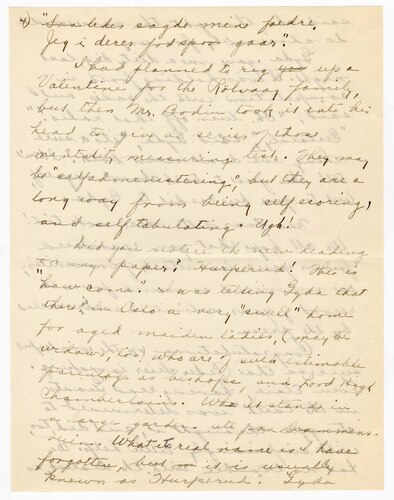 4) "Saa ledes sagde mine fædre,
Jeg i deres fodspor gaar".
I had planned to rig you up a
Valentine for the Rolvaag family,
but then Mr. Bodin took it into his
head to give a series of those
mentality measuring tests. They may
be "self administering", but they are a
long way from being self scoring,
and self tabulating. Ugh!
Did you notice the new heading
to my paper? Hurperud! This is
"how come". I was telling Gyda that
there's in Oslo a very, "swell" home
for aged maiden ladies, (may be
widows, too) who are of such estimable
parentage as bishops, and Lord High
Chamberlains. It stands in
a large garden on Drammens-
veien. What its real name is I have
forgotten, but it is usually
known as "Hurperud". Gyda